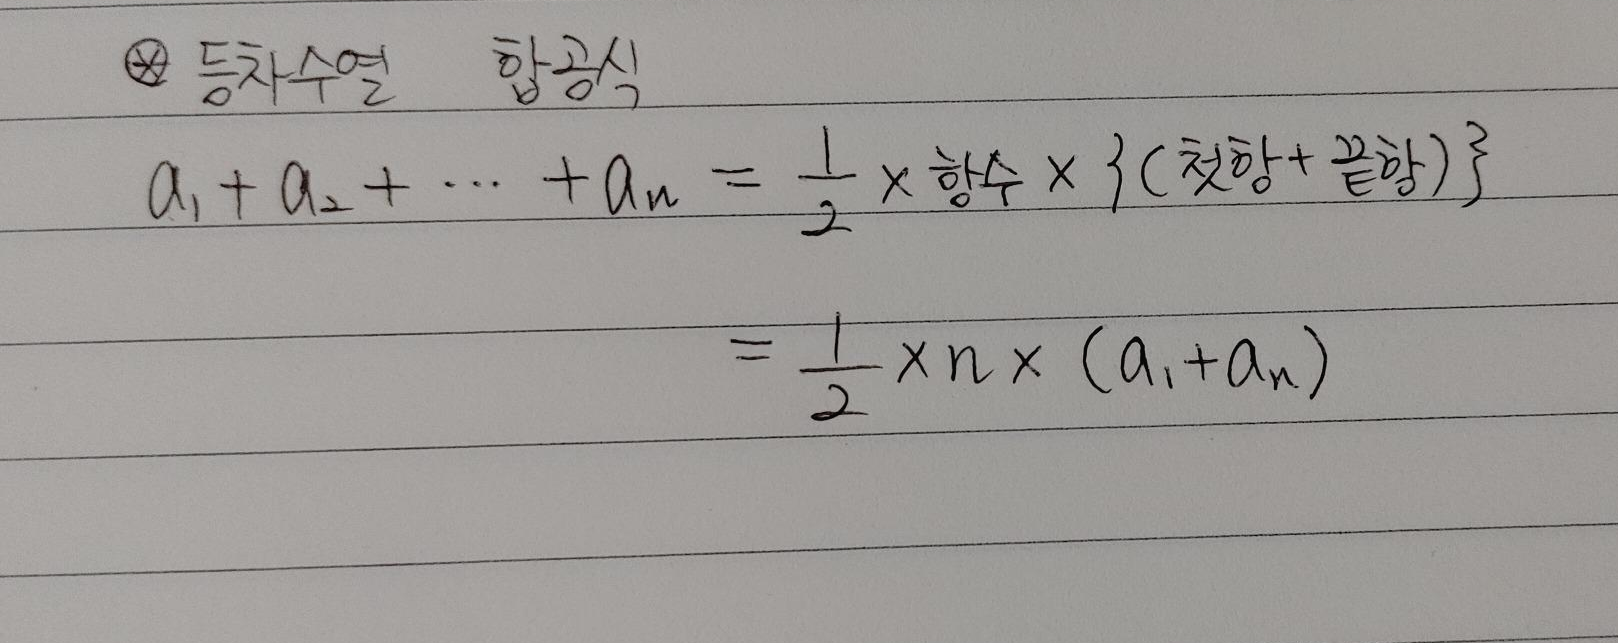 ⊛ 등차수열 합공식
a₁ + a₂ + ··· + aₙ = 1/2 × 항수 × {(첫항 + 끝항)}
= 1/2 × n × (a₁ + aₙ)